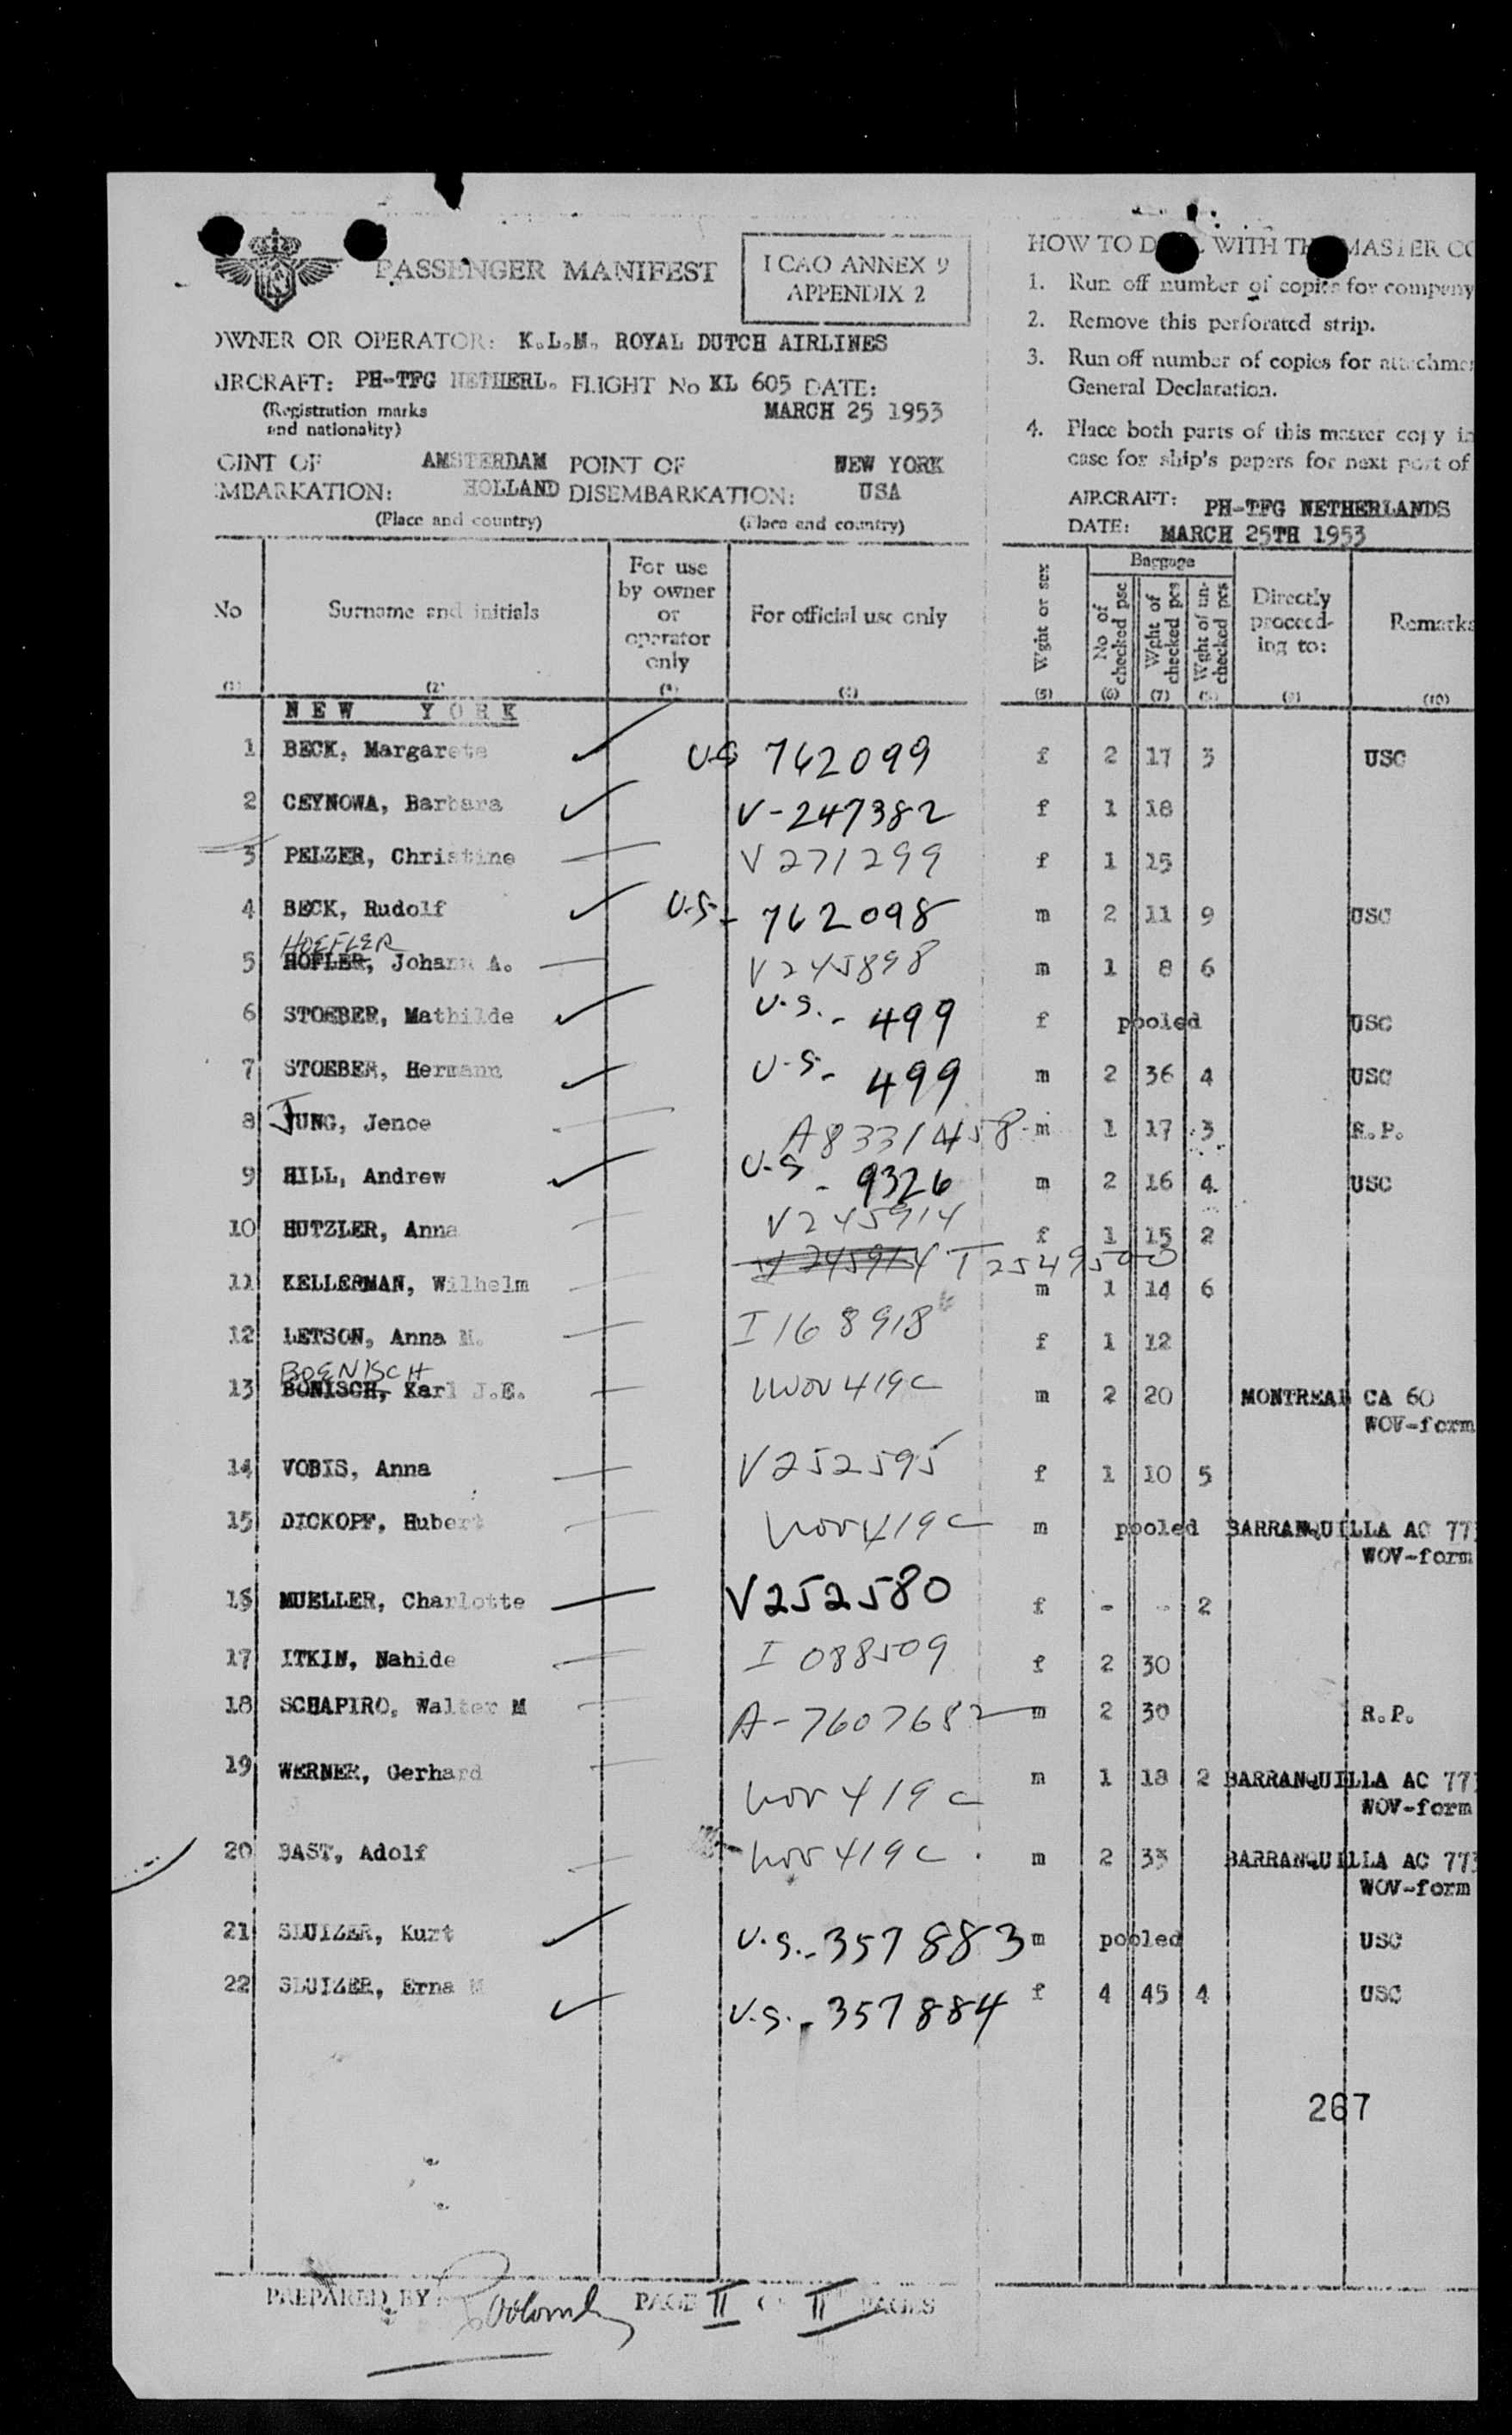 PASSENGER MANIFEST
I CAO ANNEX 9
APPENDIX 2
OWNER OR OPERATOR: K.L.M. ROYAL DUTCH AIRLINES
AIRCRAFT: PH-TFG NETHERL. FLIGHT No KL 605 DATE:
(Registration marks MARCH 25 1953
and nationality)
POINT OF AMSTERDAM POINT OF NEW YORK
EMBARKATION: HOLLAND DISEMBARKATION: USA
(Place and country) (Place and country)
HOW TO DEAL WITH THE MASTER CO
1. Run off number of copies for company
2. Remove this perforated strip.
3. Run off number of copies for attachmen
General Declaration.
4. Place both parts of this master copy in
case for ship's papers for next port of
AIRCRAFT: PH-TFG NETHERLANDS
DATE: MARCH 25TH 1953
No Surname and initials For use by owner or operator only For official use only Wght or sex Baggage No of checked pcs Wght of checked pcs Wght of un-checked pcs Directly proceed-ing to: Remarks
(1) (2) (3) (4) (5) (6) (7) (8) (9) (10)
NEW YORK
1 BECK, Margarete US 762099 f 2 17 3 USC
2 CEYNOWA, Barbara V-247382 f 1 18
3 PELZER, Christine V271299 f 1 15
4 BECK, Rudolf U.S.- 762098 m 2 11 9 USC
HOEFLER
5 HOFLER, Johann A. V245898 m 1 8 6
6 STOEBER, Mathilde U.S.- 499 f pooled USC
7 STOEBER, Hermann U.S.- 499 m 2 36 4 USC
8 JUNG, Jenoe A8331458 m 1 17 3 R.P.
9 HILL, Andrew U.S - 9326 m 2 16 4 USC
10 HUTZLER, Anna V245914 f 1 15 2
11 KELLERMAN, Wilhelm V 245914 T2549500 m 1 14 6
12 LETSON, Anna M. I168918 f 1 12
BOENISCH
13 BONISCH, Karl J.E. WOV 419C m 2 20 MONTREAL CA 60
WOV-form
14 VOBIS, Anna V252595 f 1 10 5
15 DICKOPF, Hubert WOV 419C m pooled BARRANQUILLA AC 77
WOV-form
16 MUELLER, Charlotte V252580 f - - 2
17 ITKIN, Nahide I 088509 f 2 30
18 SCHAPIRO, Walter M A-7607682 m 2 30 R.P.
19 WERNER, Gerhard WOV 419C m 1 18 2 BARRANQUILLA AC 77
WOV-form
20 BAST, Adolf WOV 419C m 2 33 BARRANQUILLA AC 773
WOV-form
21 SLUIZER, Kurt U.S.-357883 m pooled USC
22 SLUIZER, Erna M U.S.-357884 f 4 45 4 USC
267
PREPARED BY PAGE II OF II PAGES